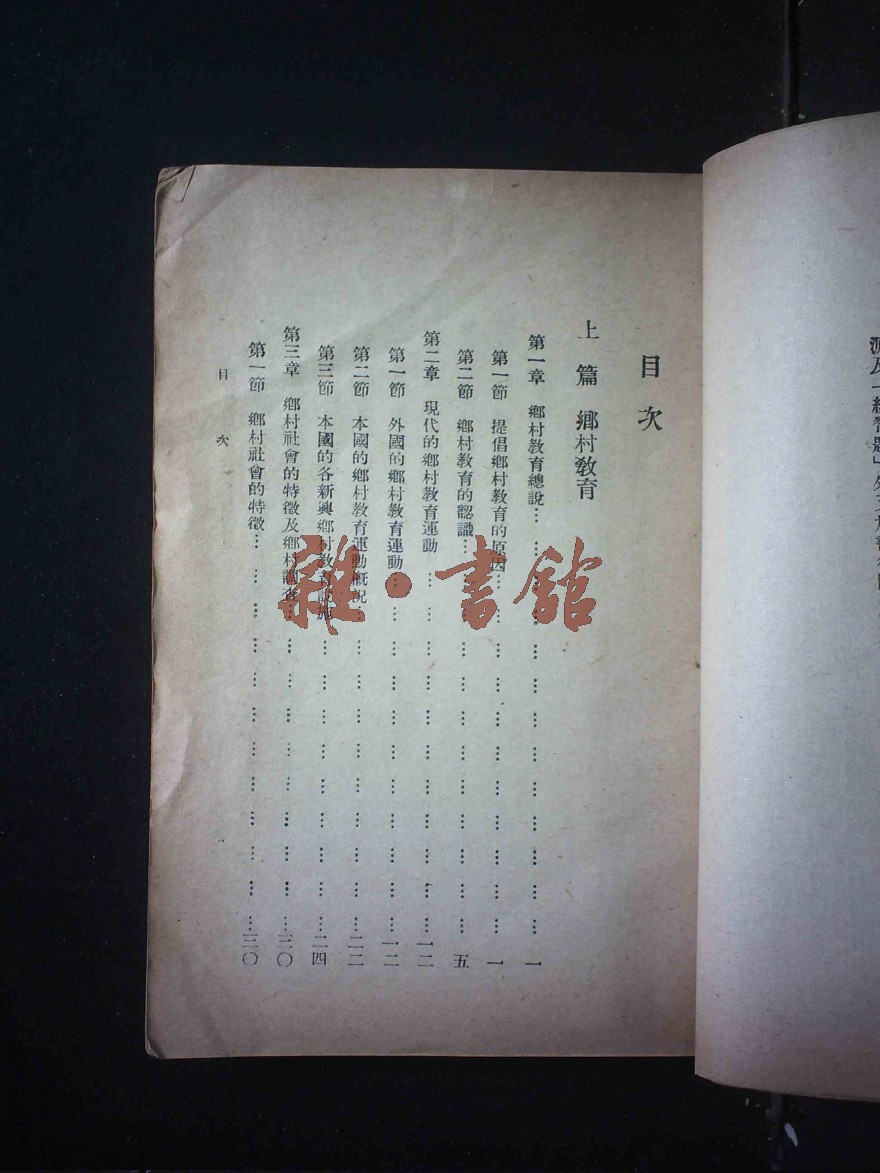 目次
上篇 鄉村教育
第一章 鄉村教育總說………………………………一
第一節 提倡鄉村教育的原因………………………………一
第二節 鄉村教育的認識………………………………五
第二章 現代的鄉村教育運動………………………………一二
第一節 外國的鄉村教育運動………………………………一二
第二節 本國的鄉村教育運動概況………………………………二二
第三節 本國的各新興鄉村教育設施………………………………二四
第三章 鄉村社會的特徵及鄉村調查………………………………三〇
第一節 鄉村社會的特徵………………………………三〇
目次
雜·書館